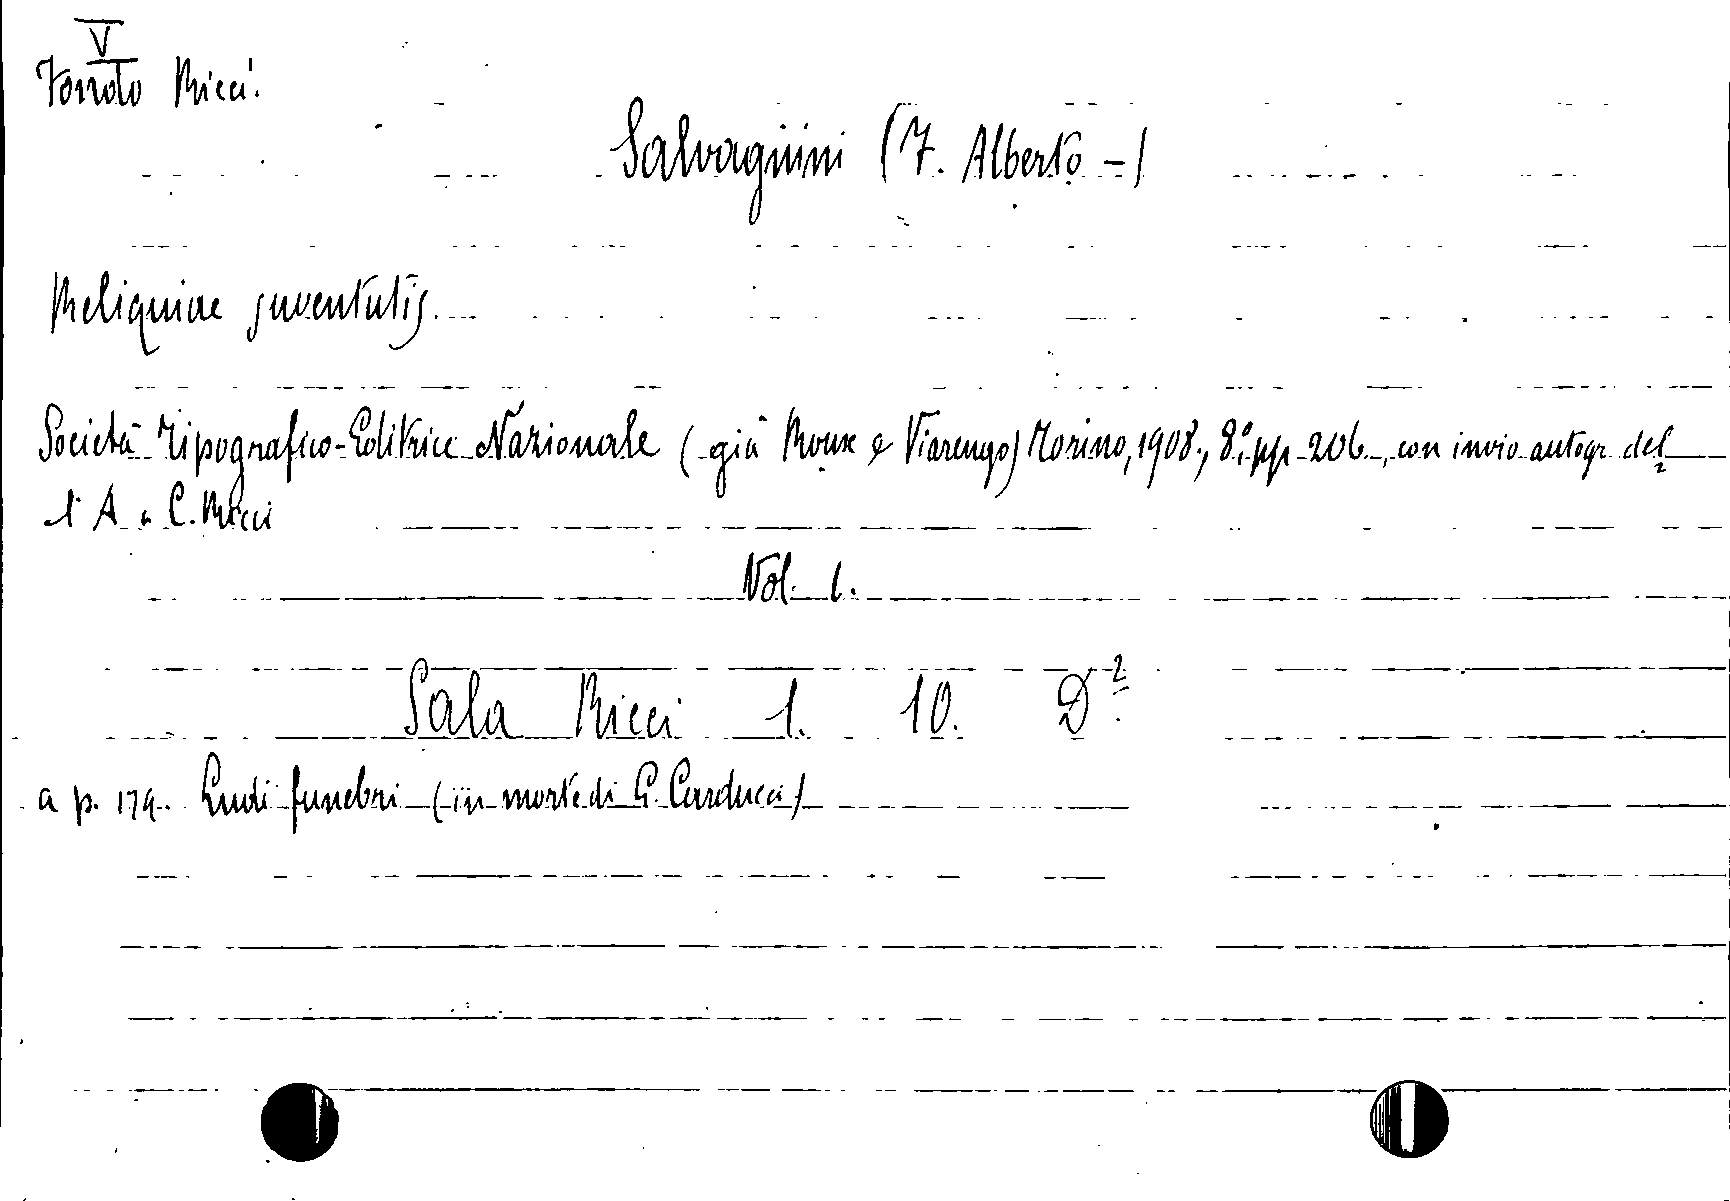 V
Fondo Ricci.
Salvagnini (F. Alberto -)
Reliquiae juventutis.
Società Tipografico-Editrice Nazionale (già Roux e Viarengo) Torino, 1908., 8°, pp. 206., con invio autogr. del
l'A. a C. Ricci
Vol. 1.
Sala Ricci 1. 10. D²
a p. 179. Ludi funebri (in morte di G. Carducci)